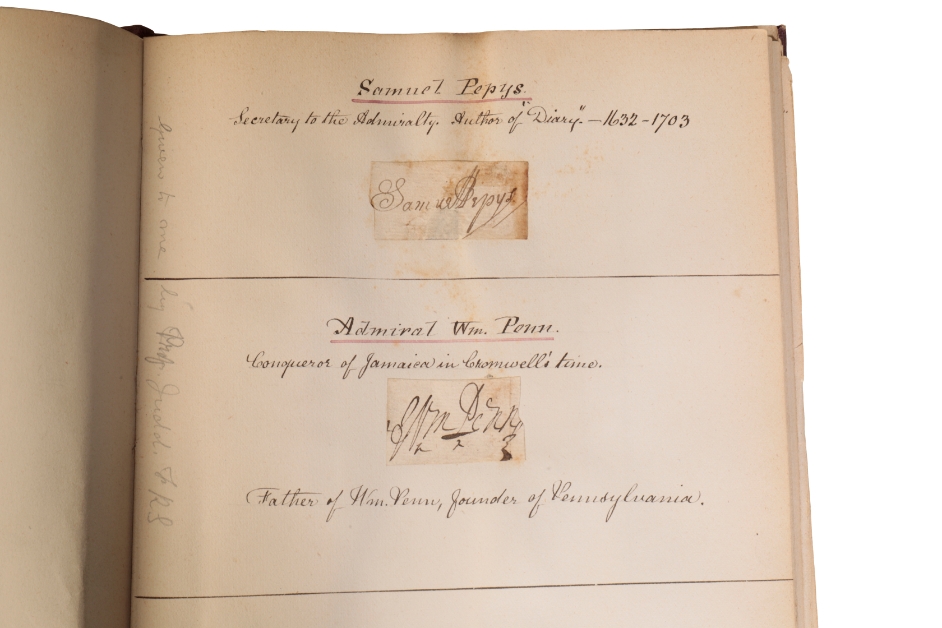 Samuel Pepys.
Secretary to the Admiralty. Author of "Diary." – 1632 – 1703
Samuel Pepys
Admiral Wm. Penn.
Conqueror of Jamaica in Cromwell's time.
Wm Penn
Father of Wm. Penn, founder of Pennsylvania.
Given to me by Prof Judd. F R S